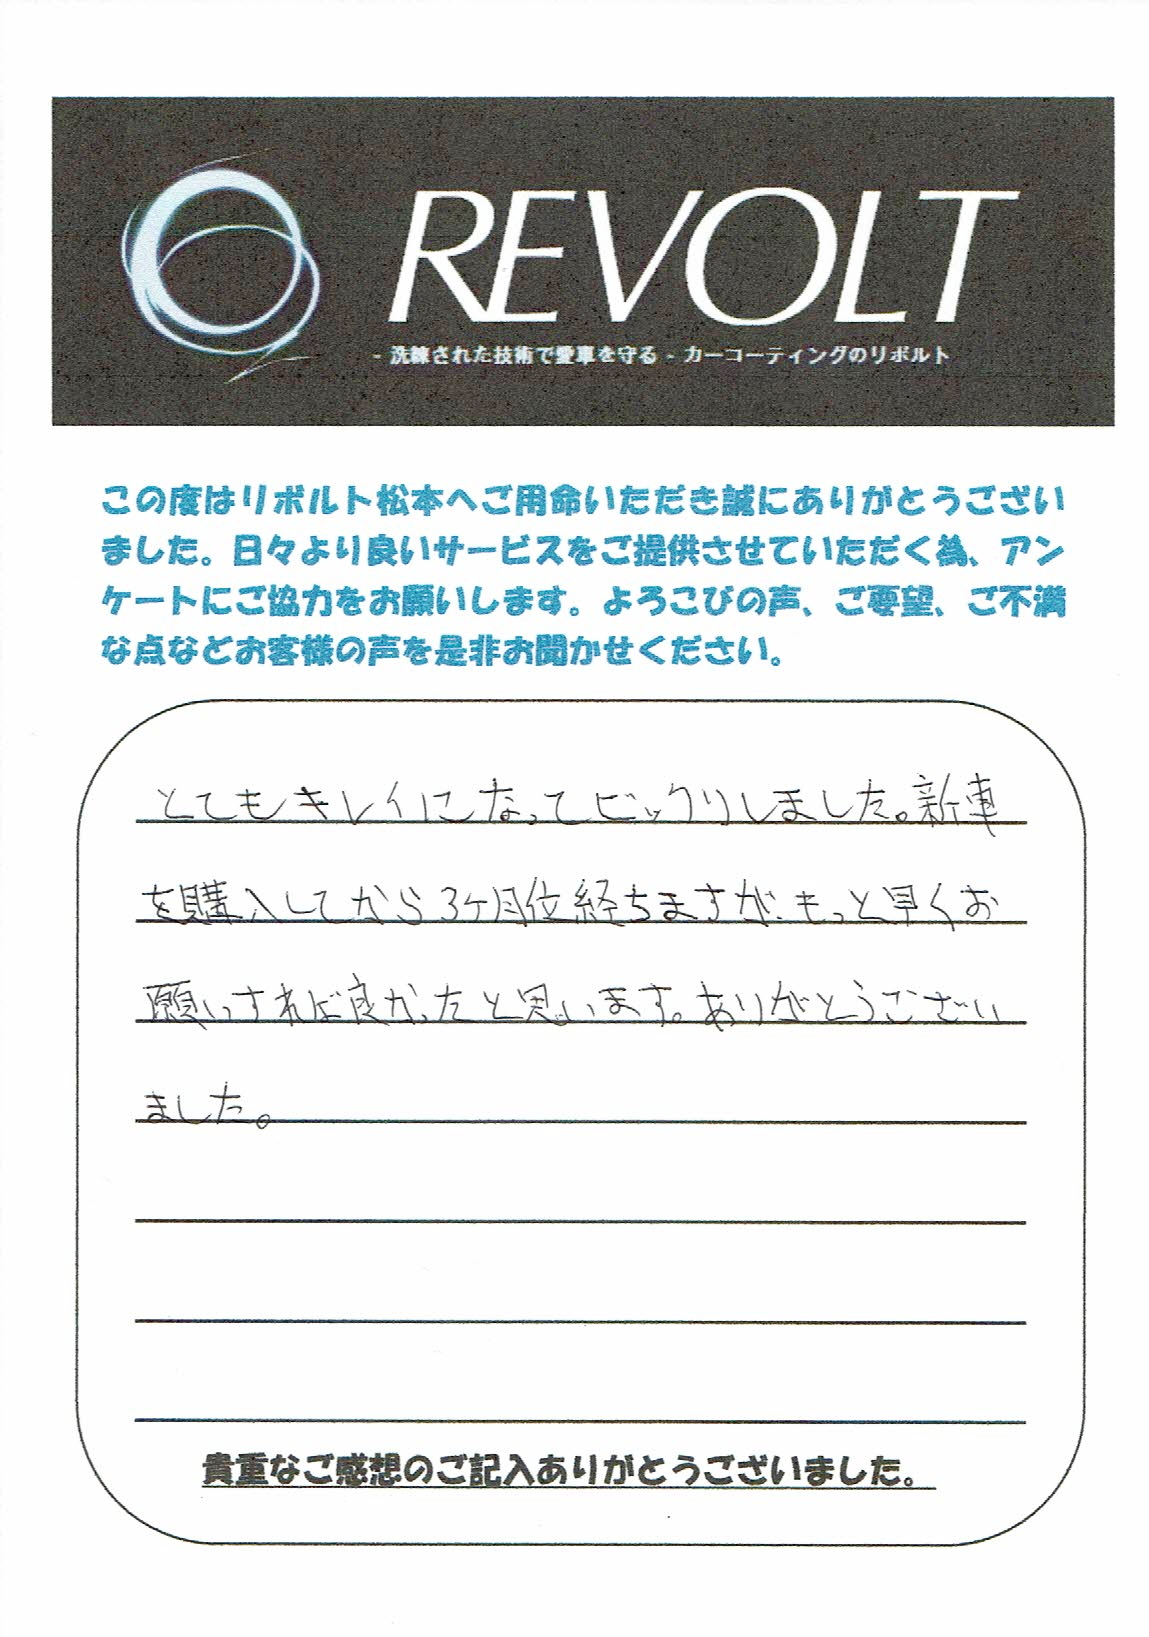 REVOLT
- 洗練された技術で愛車を守る - カーコーティングのリボルト
この度はリボルト松本へご用命いただき誠にありがとうござい
ました。日々より良いサービスをご提供させていただく為、アン
ケートにご協力をお願いします。よろこびの声、ご要望、ご不満
な点などお客様の声を是非お聞かせください。
とてもキレイになってビックリしました。新車
を購入してから3ケ月位経ちますが、もっと早くお
願いすれば良かったと思います。ありがとうござい
ました。
貴重なご感想のご記入ありがとうございました。